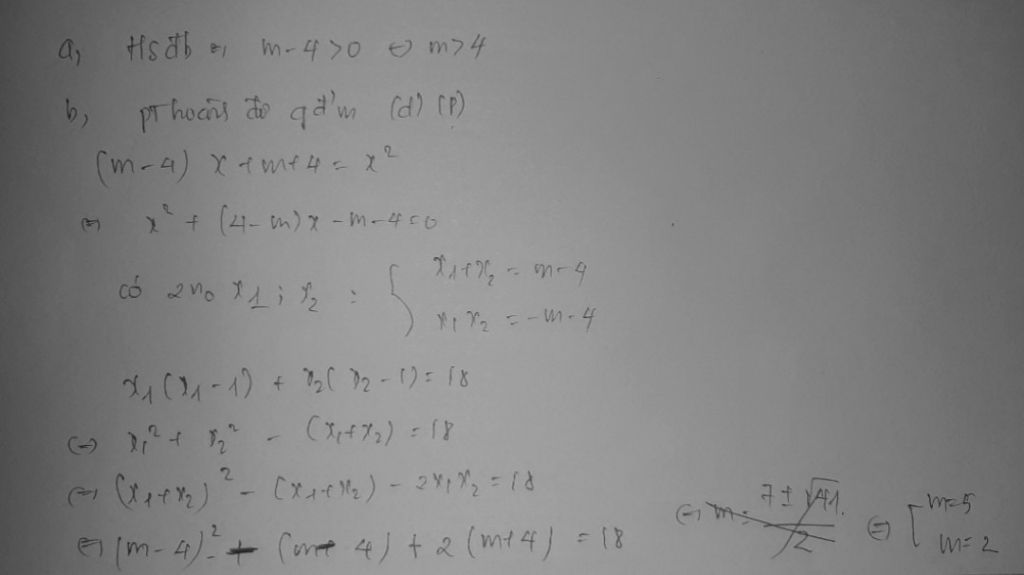 a, Hsđb ⇔ m-4>0 ⇔ m>4
b, pt hoành độ gđ'm (d) (P)
(m-4) x + m+4 = x²
⇔ x² + (4-m)x - m-4=0
có 2 no x₁ ; x₂ : { x₁+x₂ = m-4
x₁x₂ = -m-4
x₁(x₁-1) + x₂(x₂-1) = 18
⇔ x₁² + x₂² - (x₁+x₂) = 18
⇔ (x₁+x₂)² - (x₁+x₂) - 2x₁x₂ = 18
⇔ (m-4)² - (m-4) + 2(m+4) = 18 ⇔ m = 7±√41/2 ⇔ [ m=5
m=2